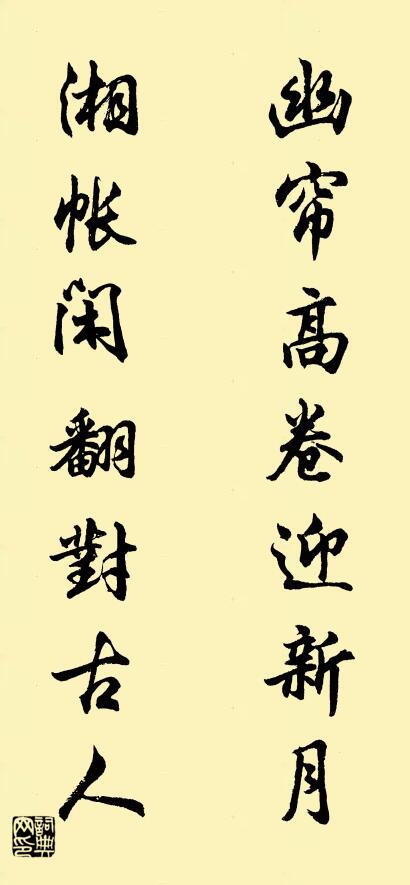 幽帘高卷迎新月
湘帐闲翻對古人
詞典网印